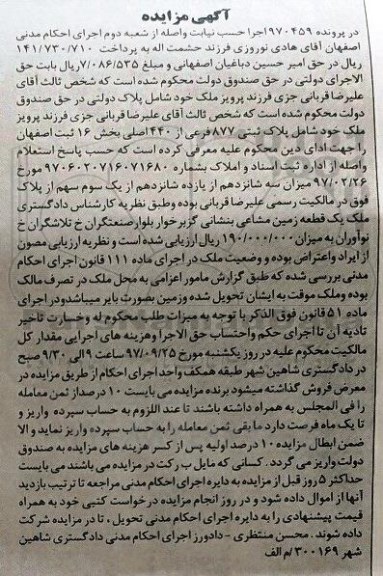 آگهی مزایده
در پرونده ۹۷۰۴۵۹ اجرا حسب نیابت واصله از شعبه دوم اجرای احکام مدنی
اصفهان آقای هادی نوروزی فرزند حشمت اله به پرداخت ۱۴۱/۷۳۰/۷۱۰
ریال در حق امیر حسین دباغیان اصفهانی و مبلغ ۷/۰۸۶/۵۳۵ریال بابت حق
الاجرای دولتی در حق صندوق دولت محکوم شده است که شخص ثالث آقای
علیرضا قربانی جزی فرزند پرویز ملک خود شامل پلاک دولتی در حق صندوق
دولت محکوم شده است که شخص ثالث آقای علیرضا قربانی جزی فرزند پرویز
ملک خود شامل پلاک ثبتی ۸۷۷فرعی از ۴۴۰اصلی بخش ۱۶ ثبت اصفهان
را جهت ادای دین محکوم علیه معرفی کرده است که حسب پاسخ استعلام
واصله از اداره ثبت اسناد و املاک بشماره ۹۷۰۶۰۲۰۷۱۶۰۷۱۶۸۰ مورخ
۹۷/۰۲/۲۶ میزان سه شانزدهم از یازده شانزدهم از یک سوم سهم از پلاک
فوق در مالکیت رسمی علیرضا قربانی بوده وطبق نظریه کارشناس دادگستری
ملک یک قطعه زمین مشاعی بنشانی گزبرخوار بلوارصنعتگران خ تلاشگران خ
نوآوران به میزان ۱۹۰/۰۰۰/۰۰۰ ریال ارزیابی شده است و نظریه ارزیابی مصون
از ایراد واعتراض بوده و وضعیت ملک در اجرای ماده ۱۱۱ قانون اجرای احکام
مدنی بررسی شده که طبق گزارش مامور اعزامی به محل ملک در تصرف مالک
بوده وملک موقت به ایشان تحویل شده وزمین بصورت بایر میباشدودر اجرای
ماده ۵۱ قانون فوق الذکر با توجه به میزات طلب محکوم له وخسارت تاخیر
تادیه آن تا اجرای حکم واحتساب حق الاجرا وهزینه های اجرایی مقدار کل
مالکیت محکوم علیه در روز یکشنبه مورخ ۹۷/۰۹/۲۵ ساعت ۹ الی ۹/۳۰ صبح
در دادگستری شاهین شهر طبقه همکف واحد اجرای احکام از طریق مزایده در
معرض فروش گذاشته میشود برنده مزایده می بایست ۱۰ درصداز ثمن معامله
را فی المجلس به همراه داشته باشند تا عند اللزوم به حساب سپرده واریز و
تا یک ماه فرصت دارد ما بقی ثمن معامله را به حساب سپرده واریز نماید و الا
ضمن ابطال مزایده ۱۰ درصد اولیه پس از کسر هزینه های مزایده به صندوق
دولت واریز می گردد. کسانی که مایل ب رکت در مزایده می باشند می بایست
حداکثر ۵ روز قبل از مزایده به دایره اجرای احکام مدنی مراجعه تا ترتیب بازدید
آنها از اموال داده شود و در روز انجام مزایده درخواست کتبی خود به همراه
قیمت پیشنهادی را به دایره اجرای احکام مدنی تحویل ، تا در مزایده شرکت
داده شوند. محسن منتظری - دادورز اجرای احکام مدنی دادگستری شاهین
شهر ۳۰۰۱۶۹ /م الف